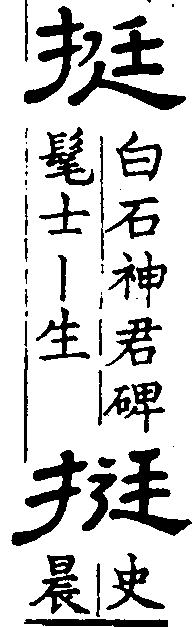 挺
白石神君碑
髦士丨生
挺
史
晨